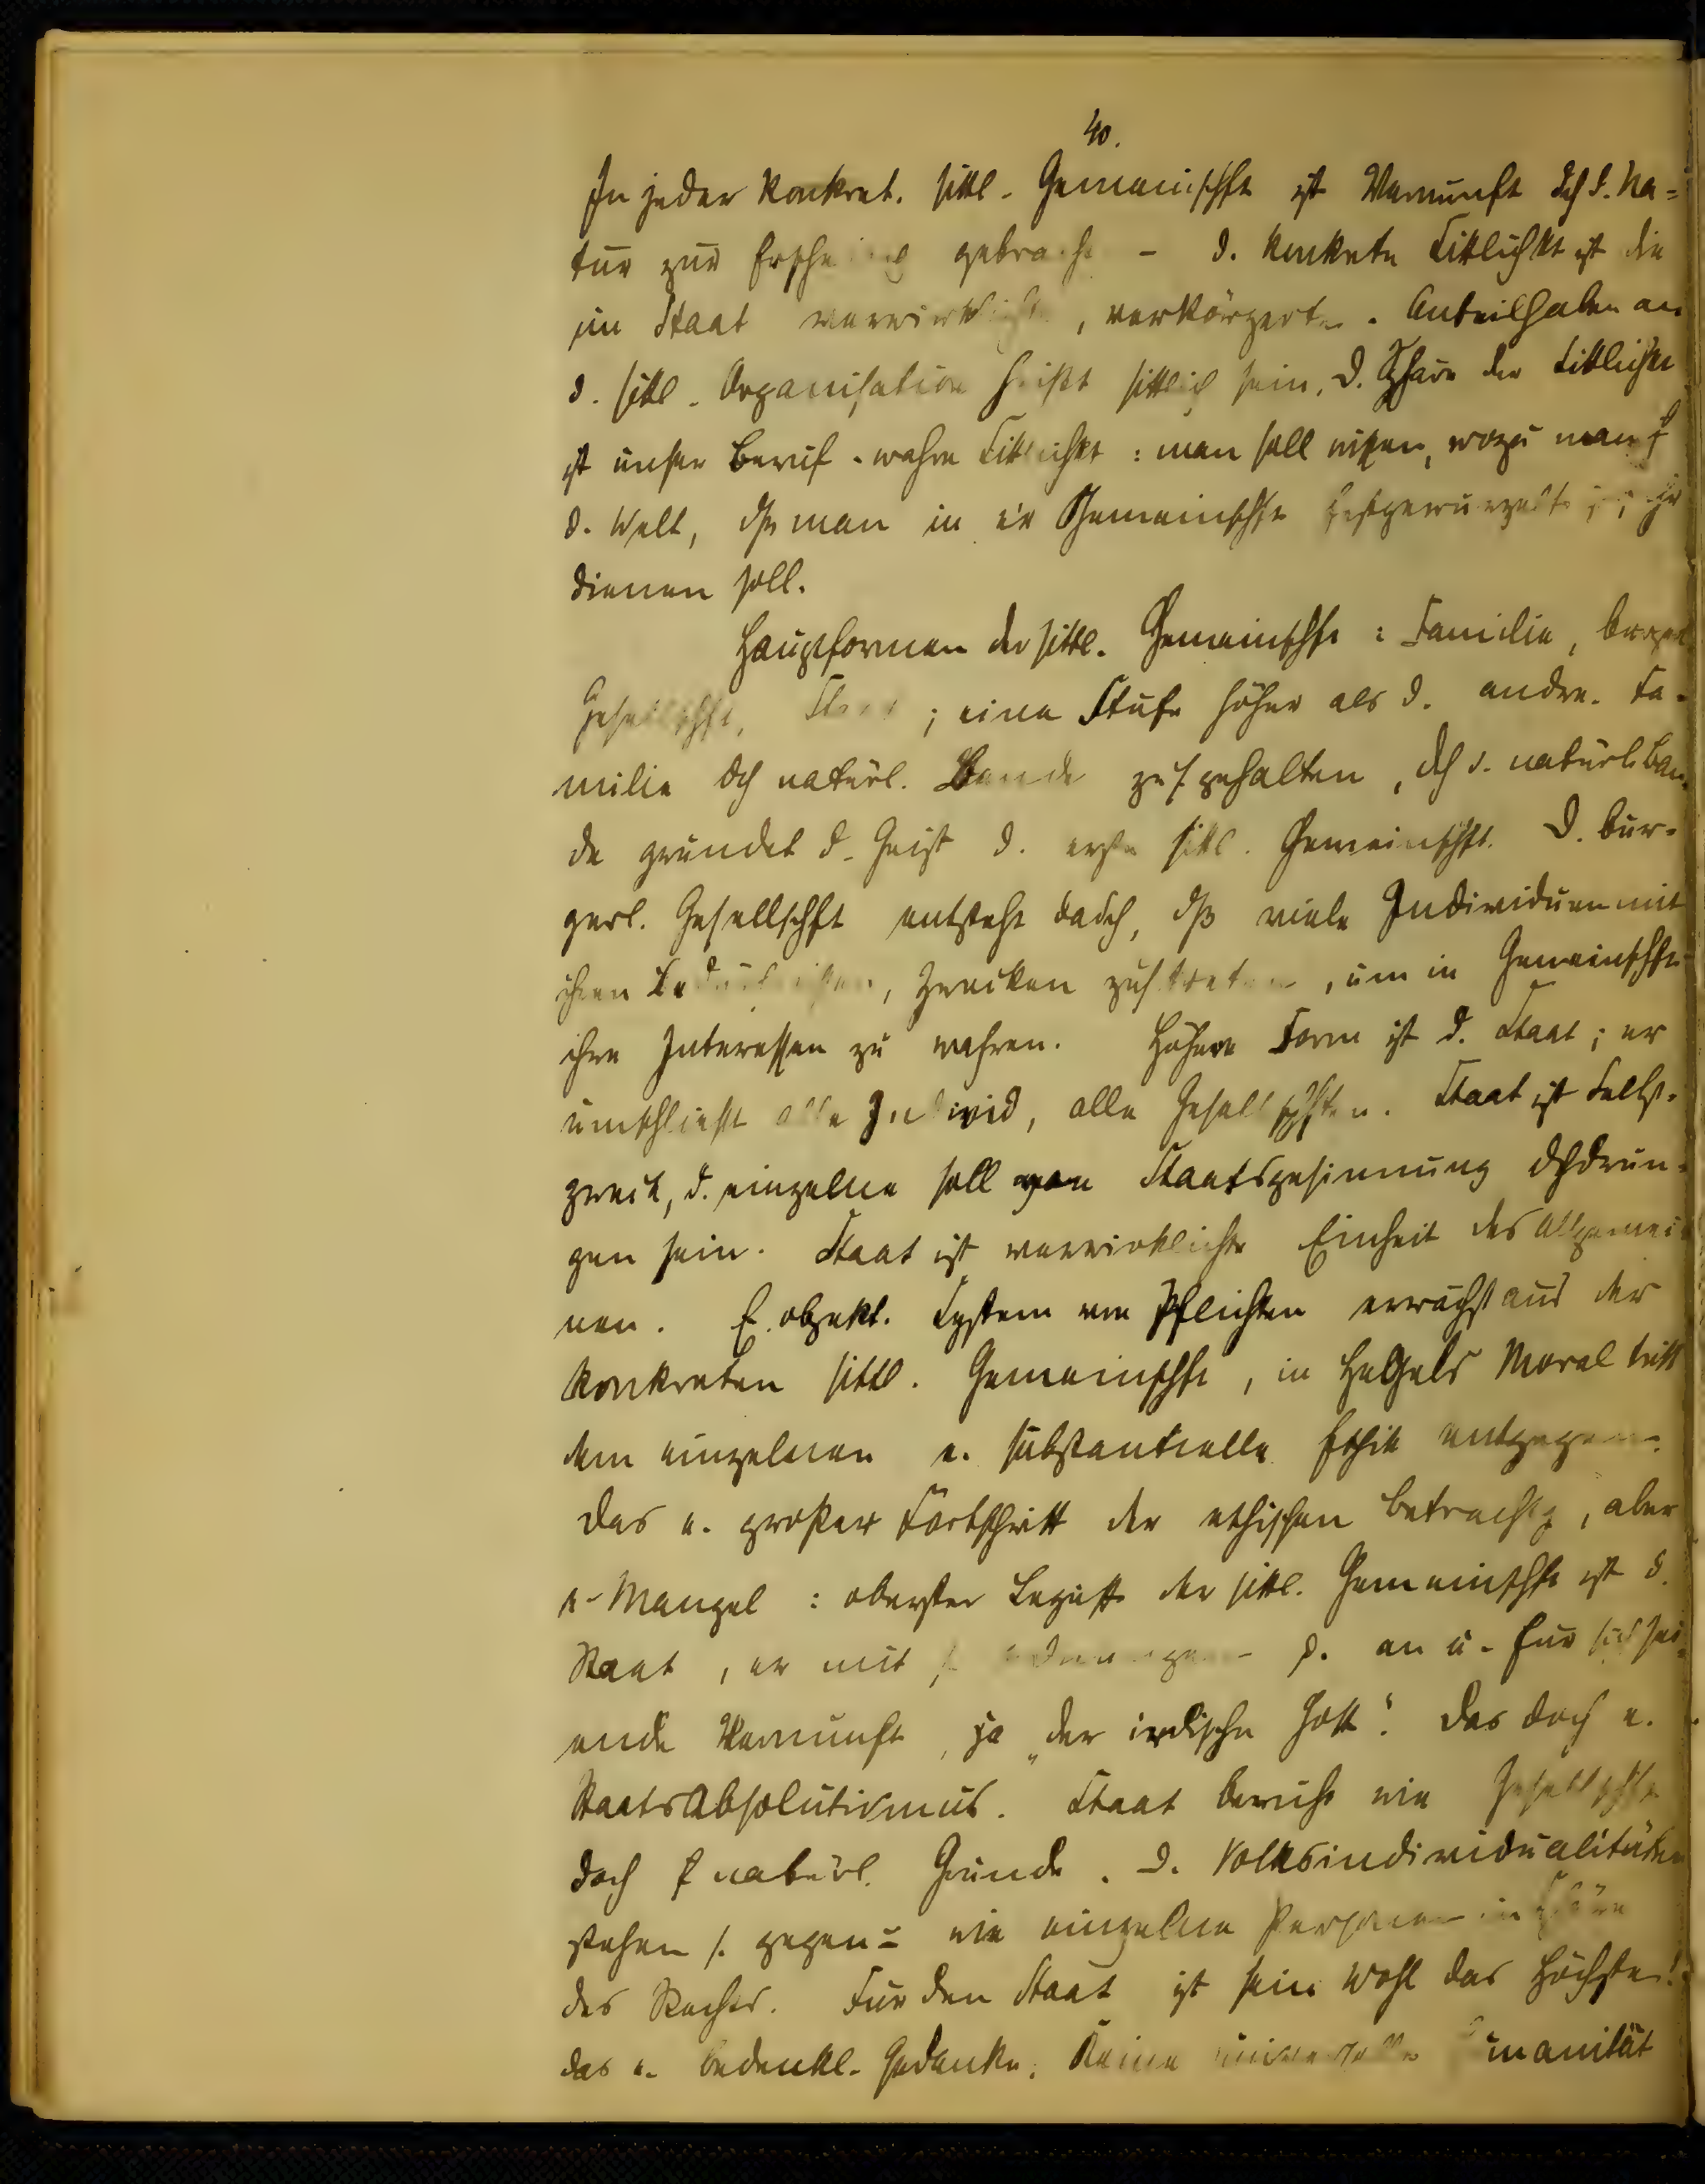 40.
In jeder konkret. sittl. Gemeinschft ist Vernunft dch d. Na=
tur zur Erscheinung gebracht - d. konkrete Sittlichkt ist die
im Staat verwirklichte, verkörperte. Anteilhaben an
d. sittl. Organisation heißt sittlich sein. D. Sphäre der Sittlichkt
ist unser Beruf. wahre Sittlichkt: man soll wissen, wozu man
d. Welt, dß man in er Gemeinschft festgewurzelt ist, ihr
dienen soll.
Hauptformen der sittl. Gemeinschft: Familie, bürgerl.
Gesellschft, Staat; eine Stufe höher als d. andre. Fa-
milie dch natürl. Bande zus.gehalten, dch d. natürl. Ban-
de gründet d. Geist d. erste sittl. Gemeinschft. D. bür-
gerl. Gesellschft entsteht dadch, dß viele Individuen mit
ihren Bedürfnissen, Zwecken zustreten, um in Gemeinschft
ihre Interessen zu wahren. Höhere Form ist d. Staat; er
umschließt alle Individ, alle Gesellschften. Staat ist Selbst-
zweck, d. einzelne soll von Staatsgesinnung dchdrun-
gen sein. Staat ist verwirklichte Einheit des Allgemei-
nen. E. objekt. System von Pflichten erwächst aus der
konkreten sittl. Gemeinschft, in Hegels Moral tritt
dem einzelnen e. substantielle Ethik entgegen.
Das e. großer Fortschritt der ethischen Betrachtg, aber
e. Mangel: oberster Begriff der sittl. Gemeinschft ist d.
Staat, er mit s. Ordnungen d. an u. für sich sei-
ende Vernunft, ja "der irdische Gott". Das doch e.
Staatsabsolutismus. Staat beruht wie Gesellschft
doch f natürl. Grunde. D. Volksindividualitäten
stehen s. gegenü wie einzelne Personen in Sphäre
des Rechts. Für den Staat ist sein Wohl das Höchste!
das e. bedenkl. Gedanke. Keine universelle Humanität